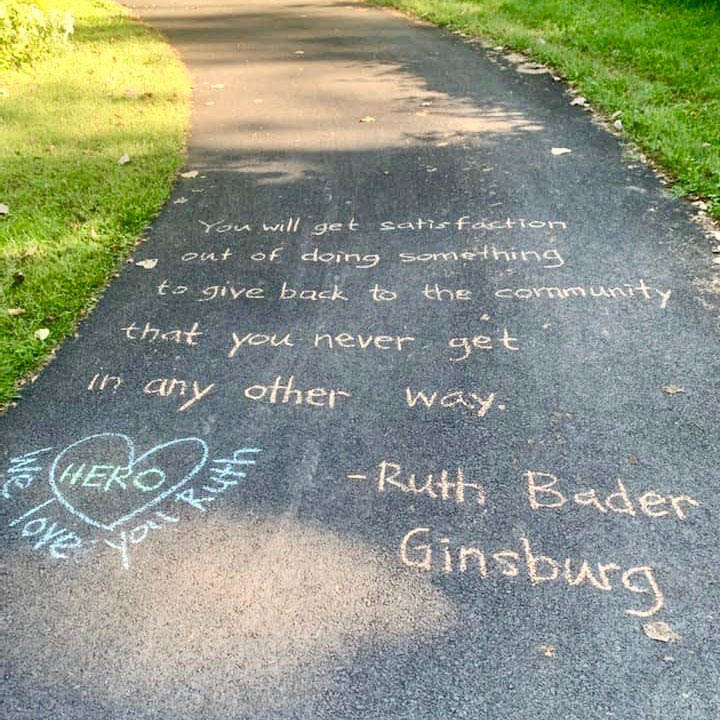 You will get satisfaction
out of doing something
to give back to the community
that you never get
in any other way.
-Ruth Bader
Ginsburg
HERO
We love you Ruth